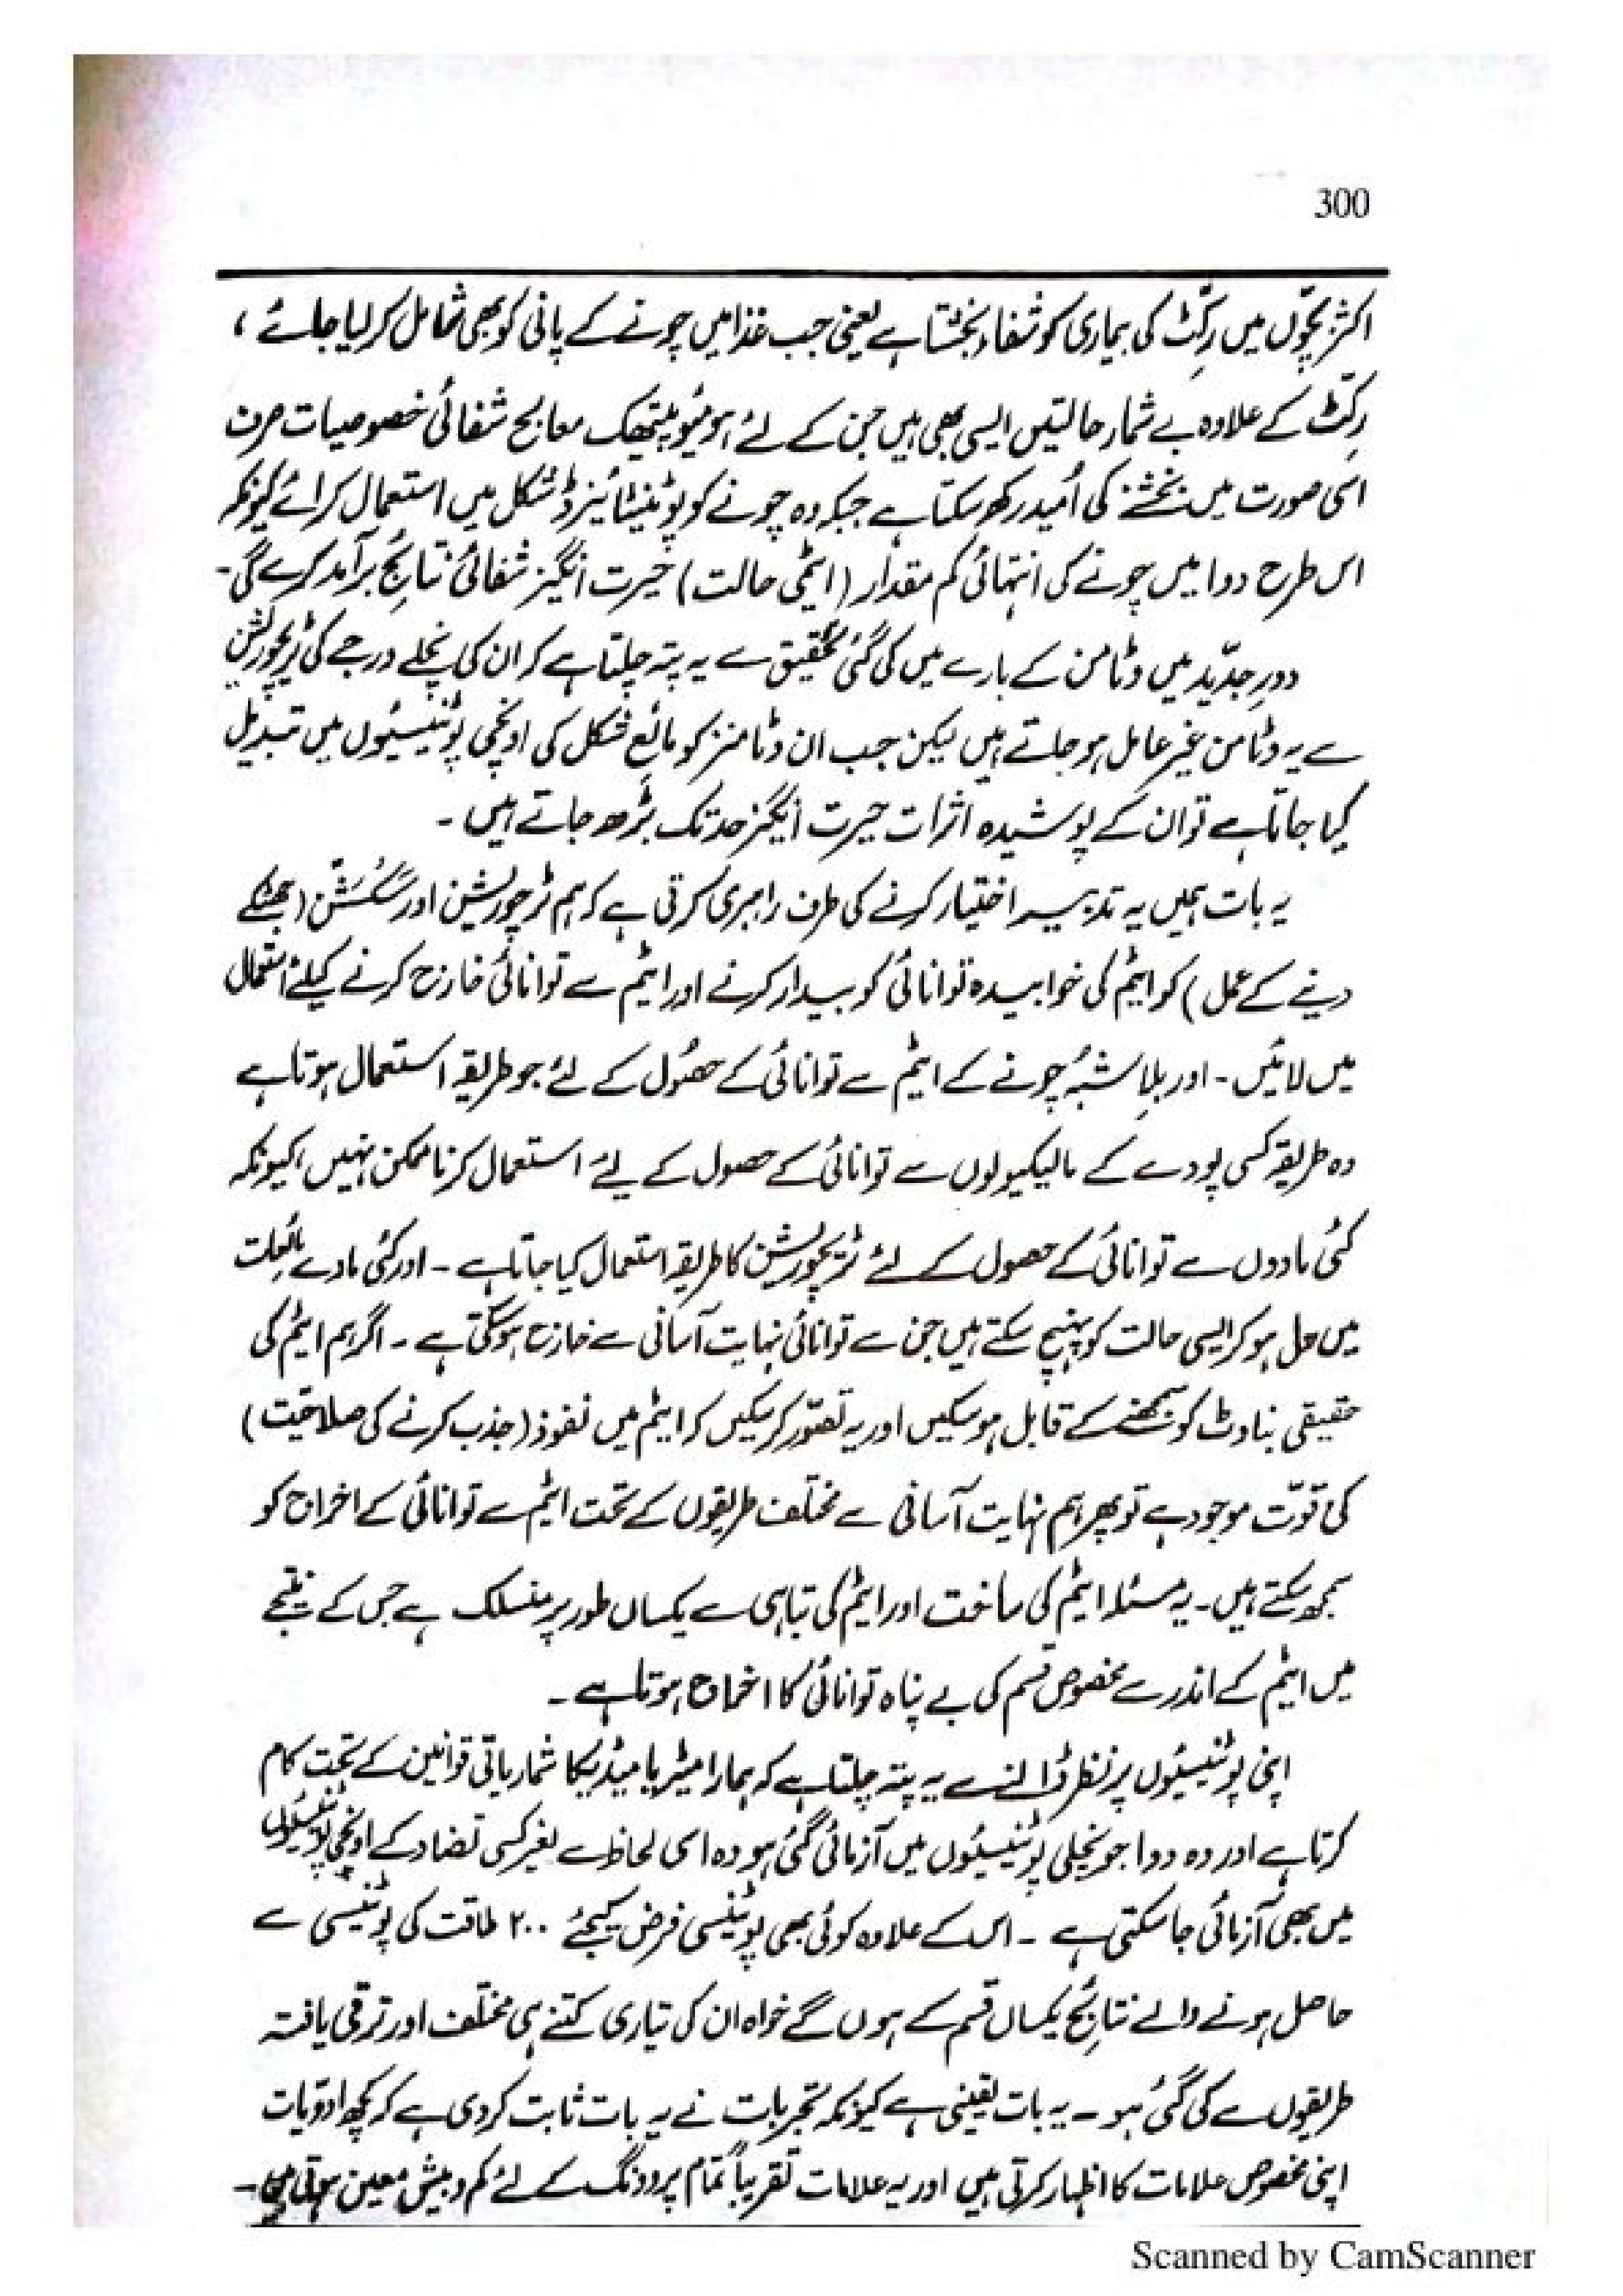 300
اکثر بچّوں میں رِکَٹ کی بیماری کو شفاء بخشتا ہے یعنی جب غذا میں چونے کے پانی کو بھی شامل کر لیا جائے ،
رِکَٹ کے علاوہ بے شمار حالتیں ایسی بھی ہیں جن کے لئے ہومیوپیتھک معالج شفائی خصوصیات صرف
اسی صورت میں بخشنے کی اُمید رکھ سکتا ہے جبکہ وہ چونے کو پوٹینٹائیزڈ شکل میں استعمال کرائے کیونکہ
اس طرح دوا میں چونے کی انتہائی کم مقدار (ایٹمی حالت) حیرت انگیز شفائی نتائج برآمد کرے گی۔
دورِ جدّید میں وٹامن کے بارے میں کی گئی تحقیق سے یہ پتہ چلتا ہے کہ ان کی نچلے درجے کی ٹریچوریشن
سے یہ وٹامن غیر عامل ہو جاتے ہیں لیکن جب ان وٹامنز کو مائع شکل کی اونچی پوٹینسیوں میں تبدیل
کیا جاتا ہے تو ان کے پوشیدہ اثرات حیرت انگیز حد تک بڑھ جاتے ہیں ۔
یہ بات ہمیں یہ تدبیر اختیار کرنے کی طرف راہبری کرتی ہے کہ ہم ٹریچوریشن اور سَکُسَشَن (جھٹکے
دینے کے عمل) کو ایٹم کی خوابیدہ توانائی کو بیدار کرنے اور ایٹم سے توانائی خارج کرنے کیلئے استعمال
میں لائیں ۔ اور بلاِ شبُہ چونے کے ایٹم سے توانائی کے حصُول کے لئے جو طریقہ استعمال ہوتا ہے
وہ طریقہ کسی پودے کے مالیکیولوں سے توانائی کے حصول کے لیے استعمال کرنا ممکن نہیں ، کیونکہ
کئی مادوں سے توانائی کے حصول کے لئے ٹریچوریشن کا طریقہ استعمال کیا جاتا ہے ۔ اور کئی مادے مائعات
میں حل ہو کر ایسی حالت کو پہنچ سکتے ہیں جن سے توانائی نہایت آسانی سے خارج ہو سکتی ہے ۔ اگر ہم ایٹم کی
حقیقی بناوٹ کو سمجھنے کے قابل ہو سکیں اور یہ تصّور کر سکیں کہ ایٹم میں نفوذ (جذب کرنے کی صلاحیت)
کی قوّت موجود ہے تو پھر ہم نہایت آسانی سے مختلف طریقوں کے تحت ایٹم سے توانائی کے اخراج کو
سمجھ سکتے ہیں ۔ یہ مسئلہ ایٹم کی ساخت اور ایٹم کی تباہی سے یکساں طور پر منسلک ہے جس کے نتیجے
میں ایٹم کے اندر سے مخصوص قسم کی بے پناہ توانائی کا اخراج ہوتا ہے ۔
اپنی پوٹینسیوں پر نظر ڈالنے سے یہ پتہ چلتا ہے کہ ہمارا میٹریا میڈیکا شماریاتی قوانین کے تحت کام
کرتا ہے اور وہ دوا جو نچلی پوٹینسیوں میں آزمائی گئی ہو وہ اسی لحاظ سے بغیر کسی تضاد کے اونچی پوٹینسیوں
میں بھی آزمائی جا سکتی ہے ۔ اس کے علاوہ کوئی بھی پوٹینسی فرض کیجئے ۲۰۰ طاقت کی پوٹینسی سے
حاصل ہونے والے نتائج یکساں قسم کے ہوں گے خواہ ان کی تیاری کتنے ہی مختلف اور ترقی یافتہ
طریقوں سے کی گئی ہو ۔ یہ بات یقینی ہے کیونکہ تجربات نے یہ بات ثابت کر دی ہے کہ کچھ ادویات
اپنی مخصوص علامات کا اظہار کرتی ہیں اور یہ علامات تقریباً تمام پرووِنگ کے لئے کم و بیش معین ہوتی ہیں ۔
Scanned by CamScanner